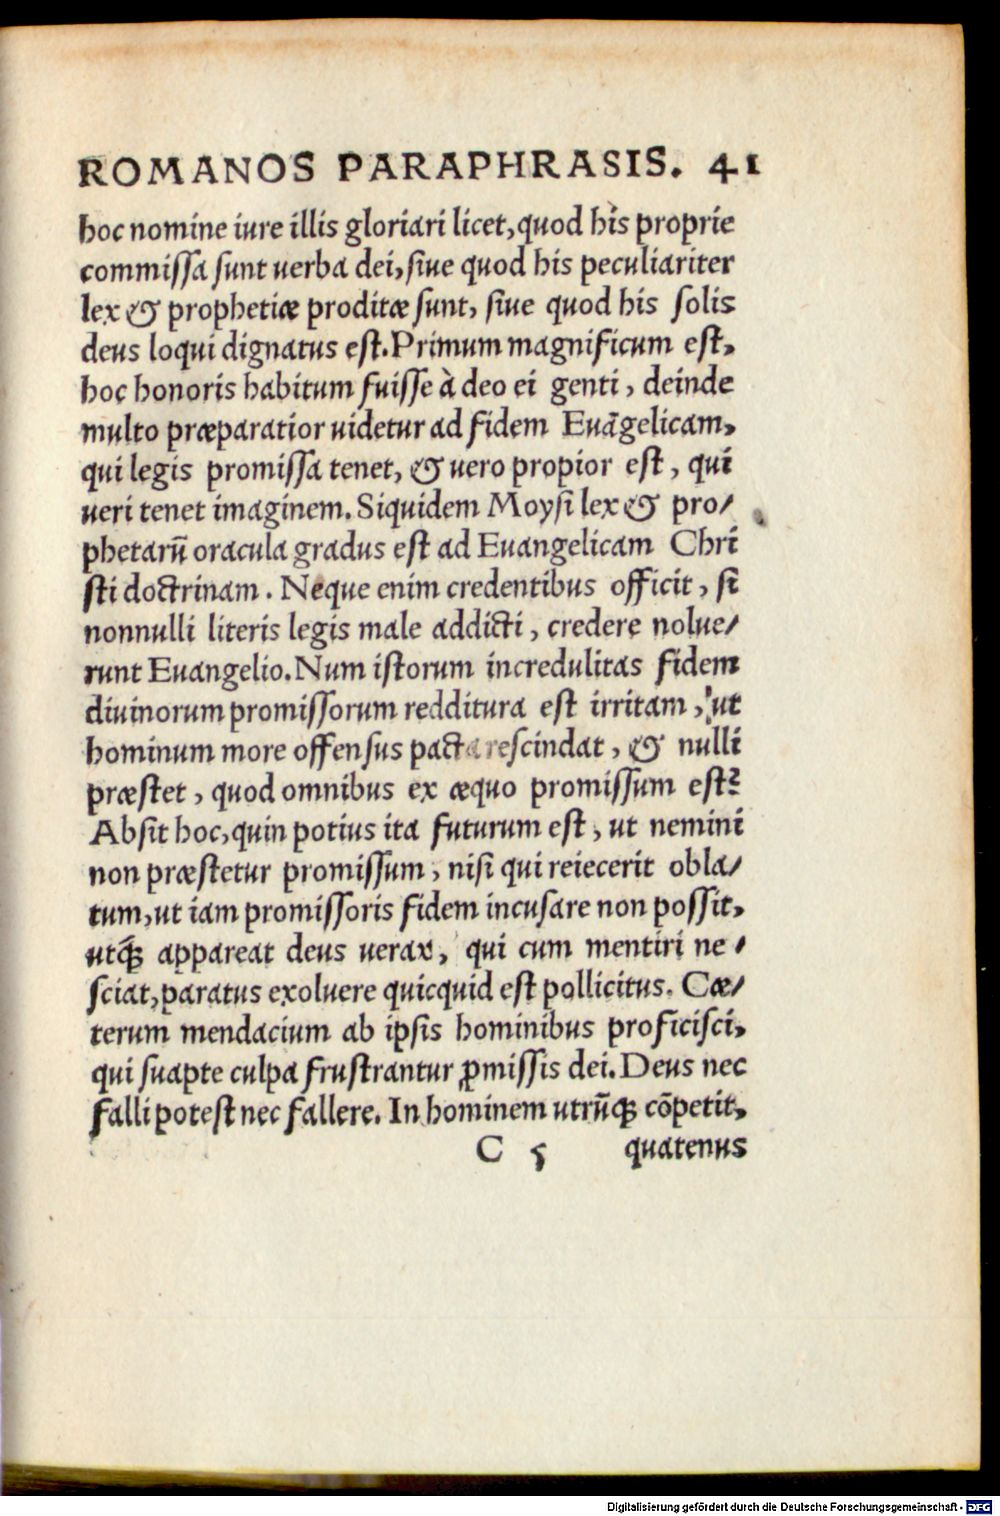 ROMANOS PARAPHRASIS. 41
hoc nomine iure illis gloriari licet, quod his proprie
commiſſa ſunt uerba dei, ſiue quod his peculiariter
lex & prophetiæ proditæ ſunt, ſiue quod his ſolis
deus loqui dignatus eſt. Primum magnificum eſt,
hoc honoris habitum fuiſſe à deo ei genti, deinde
multo præparatior uidetur ad fidem Euāgelicam,
qui legis promiſſa tenet, & uero propior eſt, qui
ueri tenet imaginem. Siquidem Moyſi lex & pro/
phetarū oracula gradus eſt ad Euangelicam Chri
ſti doctrinam. Neque enim credentibus officit, ſi
nonnulli literis legis male addicti, credere nolue/
runt Euangelio. Num iſtorum incredulitas fidem
diuinorum promiſſorum redditura eſt irritam, ut
hominum more offenſus pacta reſcindat, & nulli
præſtet, quod omnibus ex æquo promiſſum eſt?
Abſit hoc, quin potius ita futurum eſt, ut nemini
non præſtetur promiſſum, niſi qui reiecerit obla/
tum, ut iam promiſſoris fidem incuſare non poſſit,
utq́ꝫ appareat deus uerax, qui cum mentiri ne/
ſciat, paratus exoluere quicquid eſt pollicitus. Cæ/
terum mendacium ab ipſis hominibus proficiſci,
qui ſuapte culpa fruſtrantur ꝓmiſſis dei. Deus nec
falli poteſt nec fallere. In hominem utrūqꝫ cōpetit,
C 5 quatenus
Digitalisierung gefördert durch die Deutsche Forschungsgemeinschaft - DFG